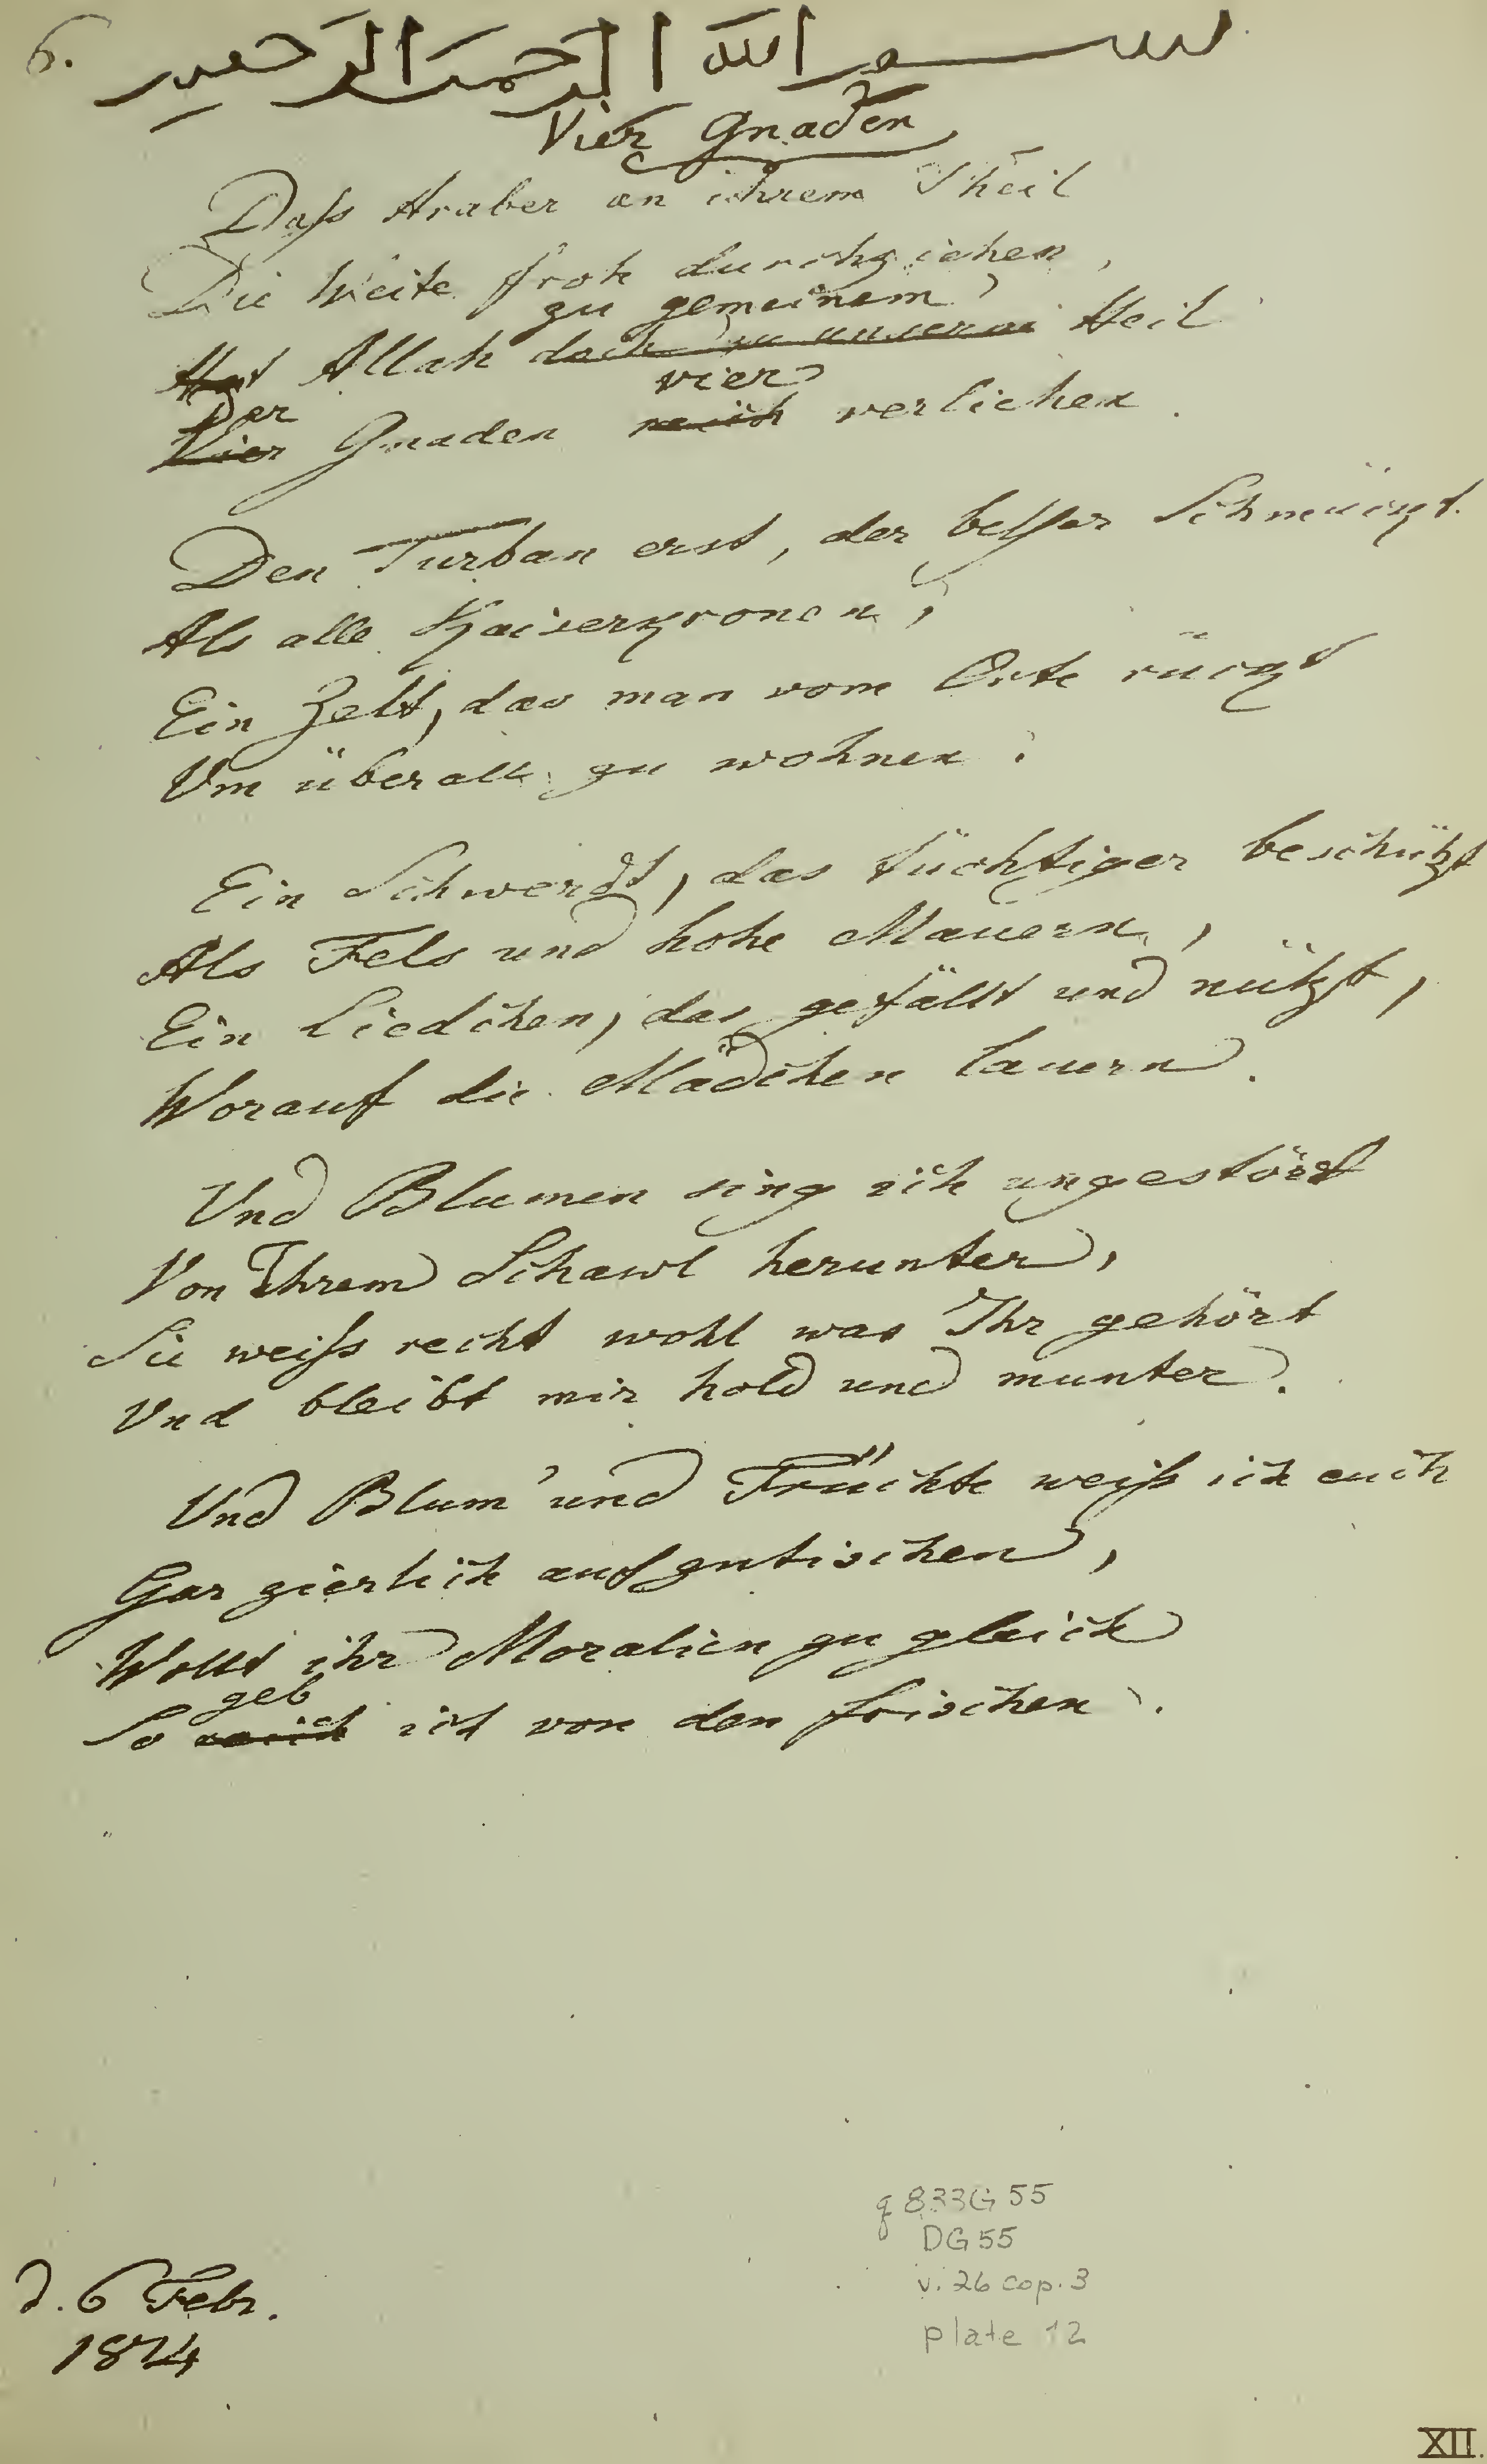 6.
بسم الله الرحمن الرحيم
Vier Gnaden
Daſs Araber an ihrem Theil
Die Weite froh durchziehen,
zu gemeinem
Hat Allah doch zu unserm Heil
Der vier
Vier Gnaden reich verliehen.
Den Turban erst, der beſser Schmückt
Als alle Kaiserkronen;
Ein Zelt, das man vom Orte rückt
Um überall zu wohnen:
Ein Schwerdt, das tüchtiger beschützt
Als Fels und hohe Mauern,
Ein Liedchen, das gefällt und nützt,
Worauf die Mädchen lauern.
Und Blumen sing ich ungestört
Von Ihrem Schawl herunter,
Sie weiſs recht wohl was Ihr gehört
Und bleibt mir hold und munter.
Und Blum' und Früchte weiſs ich euch
Gar zierlich aufzutischen,
Wollt ihr Moralien zugleich
geb
So reich ich von den frischen.
d. 6 Febr.
1814
q 833G55
DG55
v. 26 cop. 3
plate 12
XII.